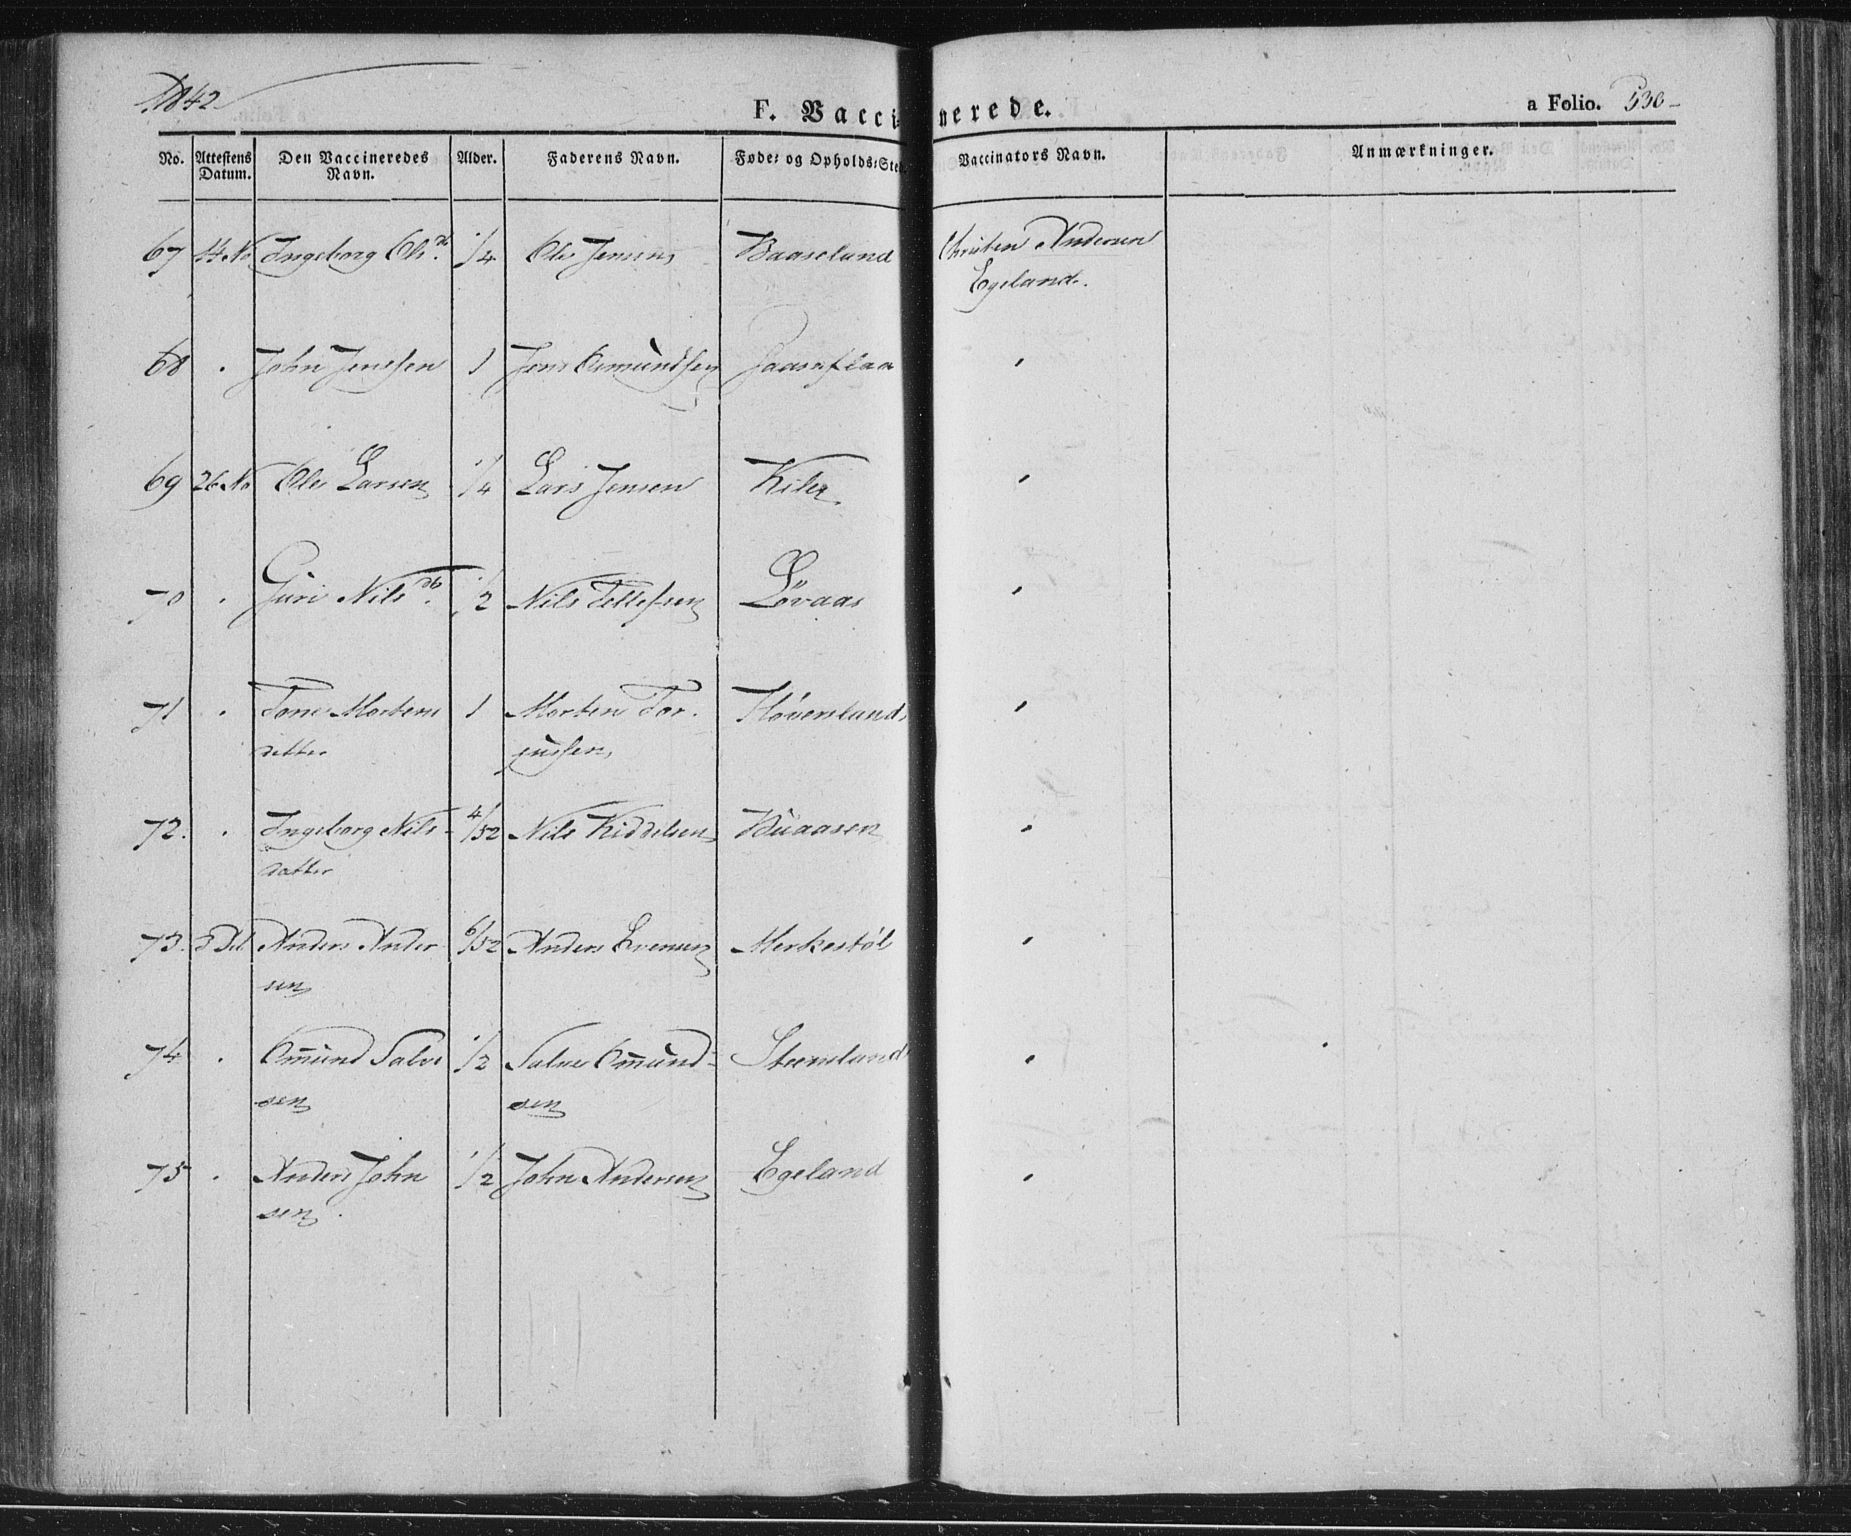 1842
F. Vaccinerede.
a Folio. 530
No. Attestens Datum. Den Vaccineredes Navn. Alder. Faderens Navn. Føde- og Opholds-Sted Vaccinators Navn. Anmærkninger.
67 14 No Ingeborg Ols dr. 1/4 Ole Jensen Baaseland Christen Andersen
Egeland.
68 . John Jenssen 1 Jens Osmundsen
69 26 No Ole Larsen 1/4 Lars Jensen Kiler
70 . Guri Nils dr. 1/2 Nils Tellefsen Løvaas
71 . Tone Mortens 1 Morten Tor- Høvenland
datter jussen
72. . Ingeborg Nils- 4/52 Nils Kiddelsen Buaasen
datter
73. 3 Anders Ander 6/52 Anders Evensen Merkestøl
sen
74 . Omund Salve 1/2 Salve Omund- Steensland
sen sen
75 . Anders John 1/2 John Andersen Egeland
sen.